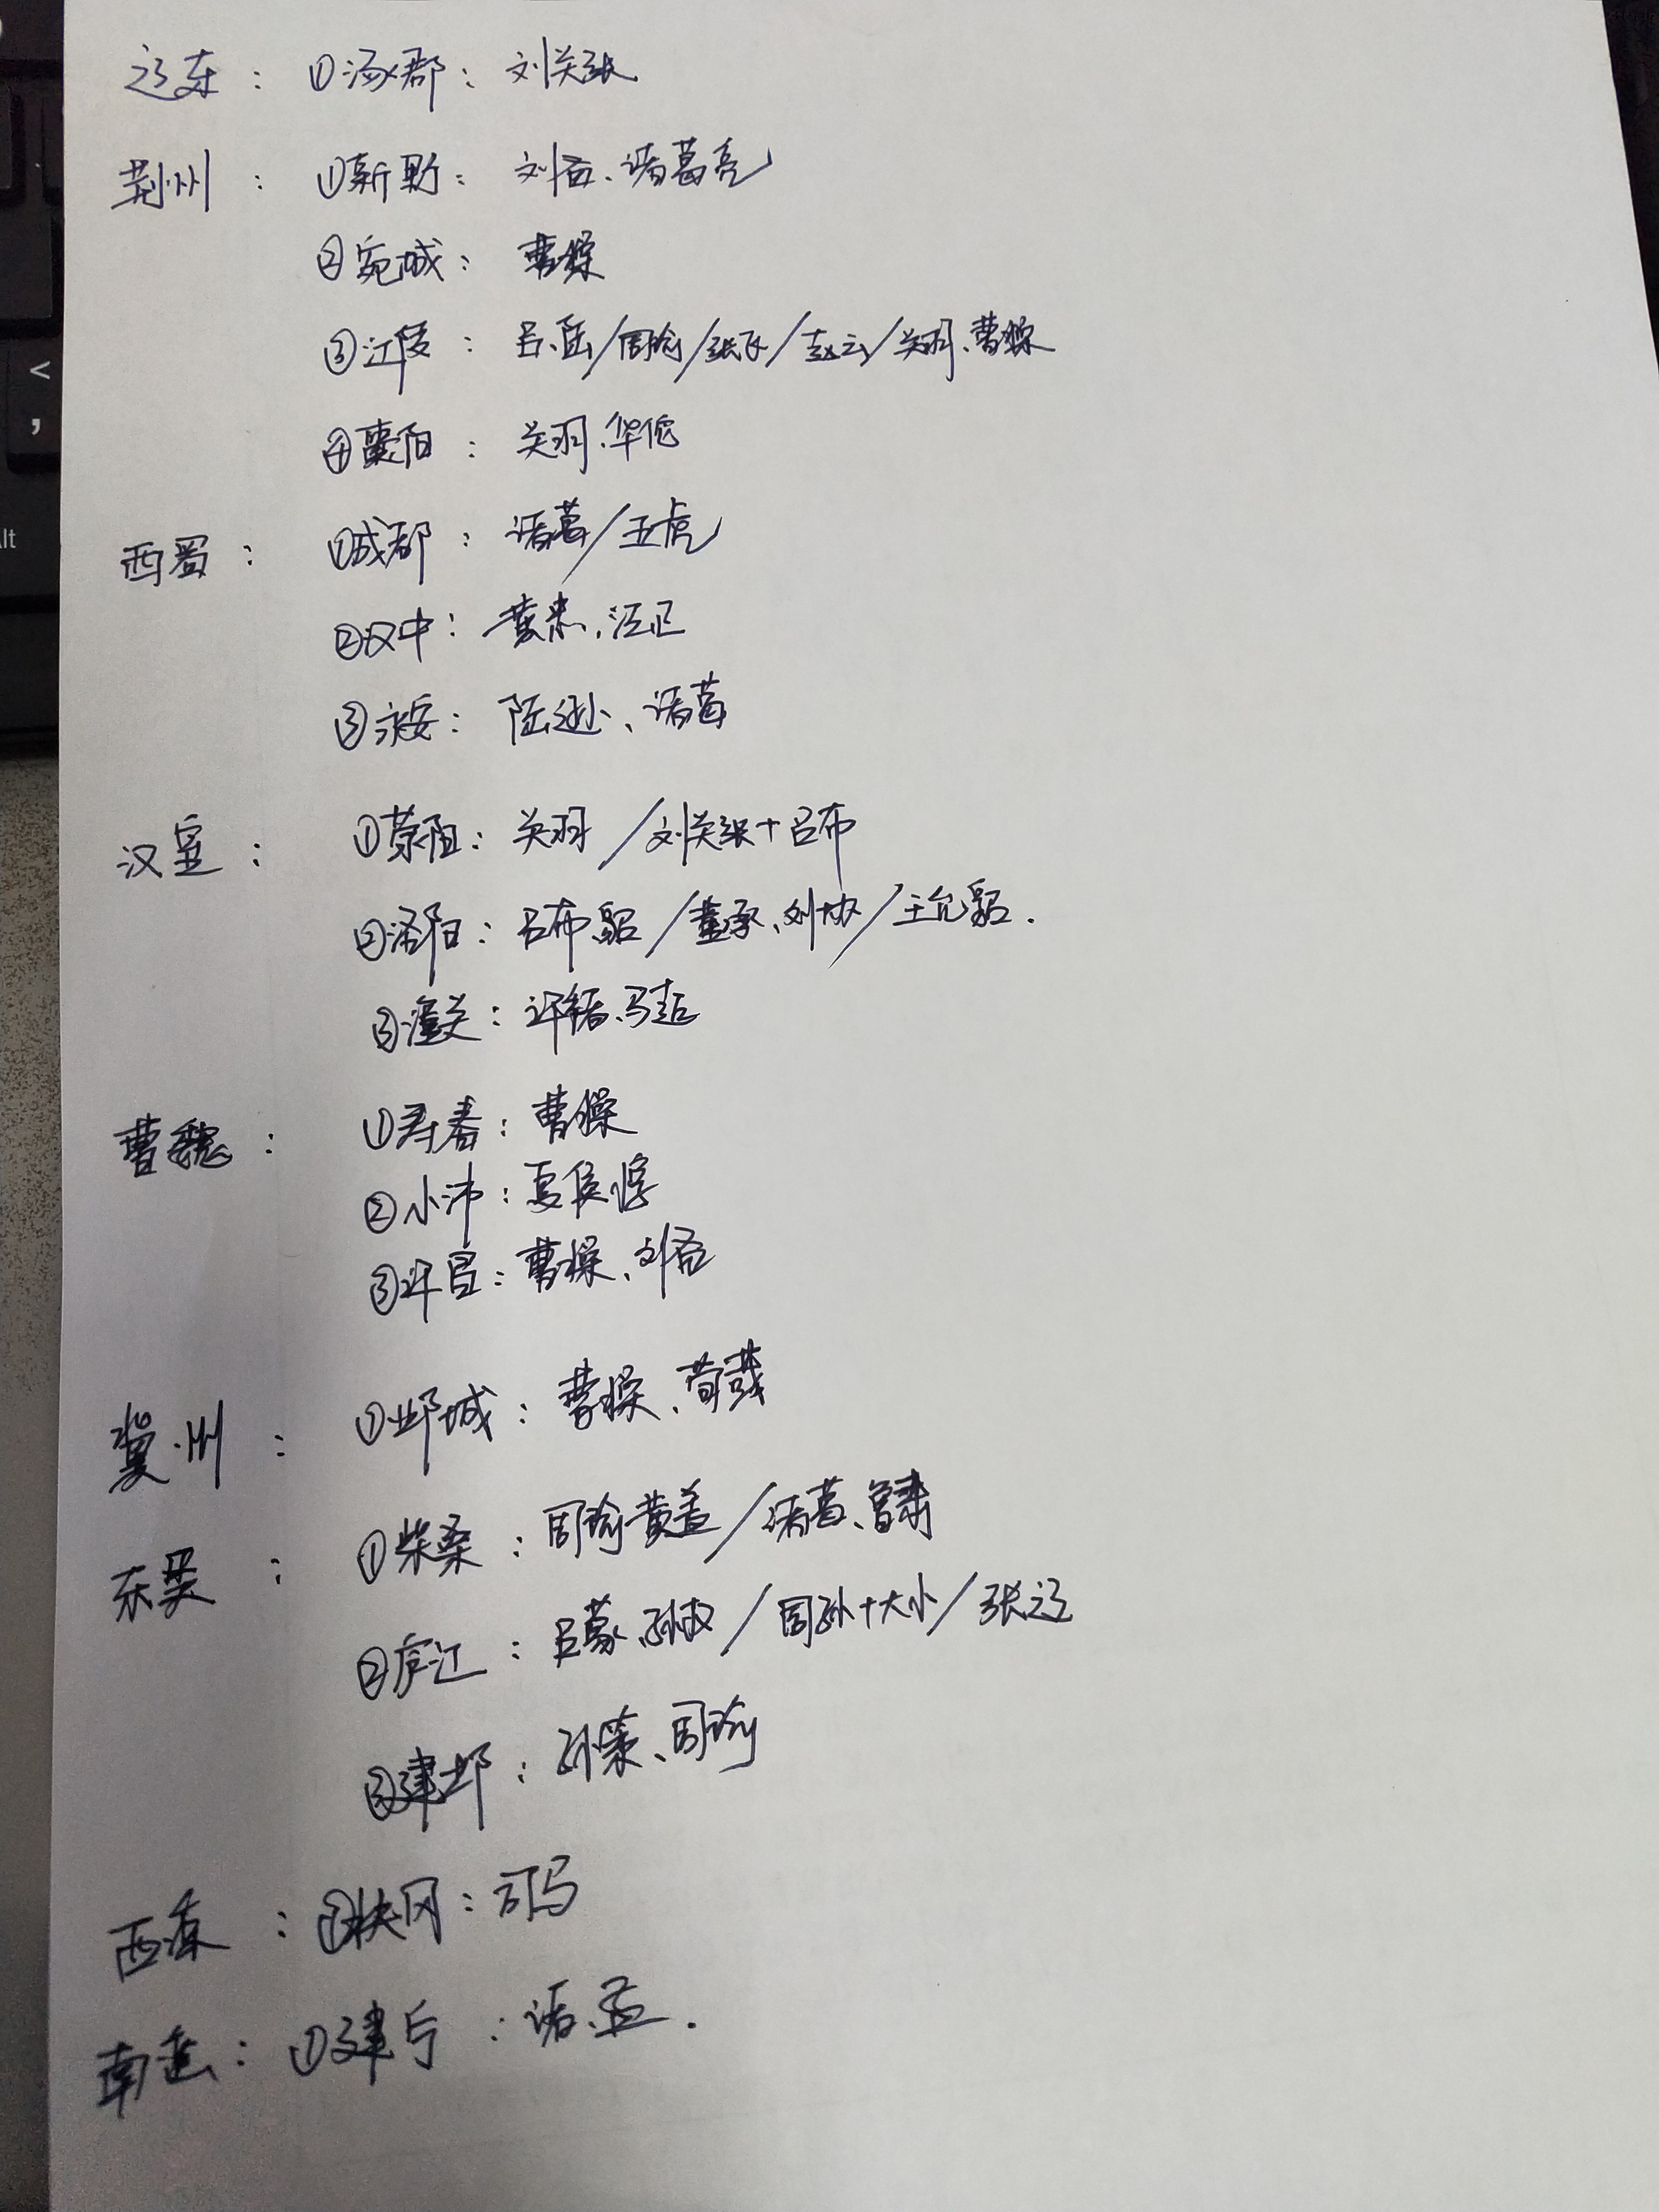 辽东：①涿郡：刘关张
荆州：①新野：刘备、诸葛亮
②宛城：曹操
③江陵：吕、陆/周瑜/张飞/赵云/关羽、曹操
④襄阳：关羽、华佗
西蜀：①成都：诸葛/五虎
②汉中：黄忠、法正
③永安：陆逊、诸葛
汉室：①荥阳：关羽/刘关张+吕布
②洛阳：吕布、貂/董承、刘协/王允、貂.
③潼关：许褚、马超
曹魏：①寿春：曹操
②小沛：夏侯惇
③许昌：曹操、刘备
冀州：①邺城：曹操、荀彧
东吴：①柴桑：周瑜黄盖/诸葛、鲁肃
②庐江：吕蒙、孙权/周孙+大小/张辽
③建邺：孙策、周瑜
西凉：：司马
南：①建宁：诸、孟.
<
,
lt